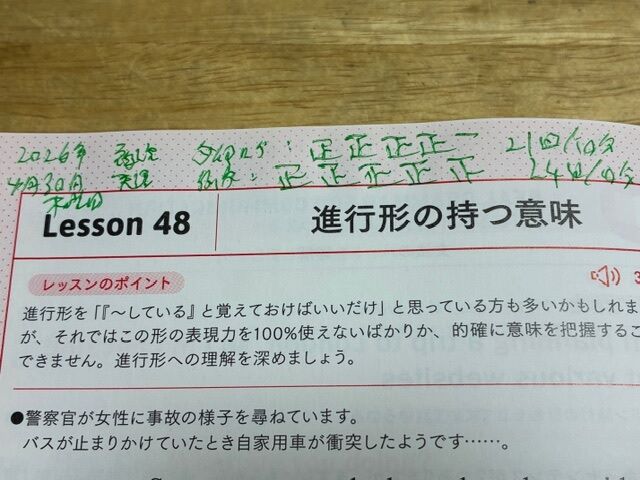 2026年 ダイアログ：正正正正一 21回/10分
4月30日 正正正正正 24回/10分
木曜日
Lesson 48 進行形の持つ意味
レッスンのポイント
進行形を「『～している』と覚えておけばいいだけ」と思っている方も多いかもしれま
が、それではこの形の表現力を100%使えないばかりか、的確に意味を把握するこ
できません。進行形への理解を深めましょう。
●警察官が女性に事故の様子を尋ねています。
バスが止まりかけていたとき自家用車が衝突したようです……。